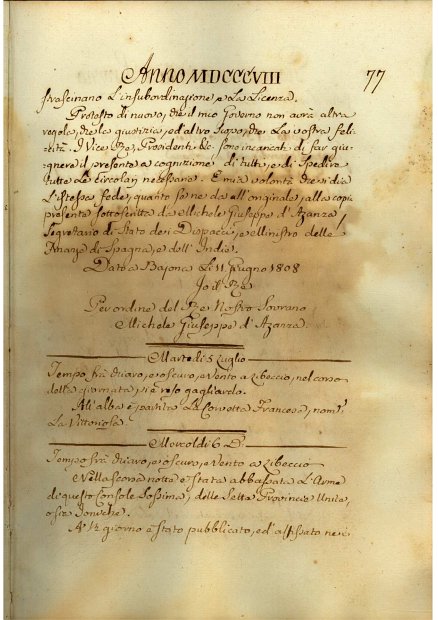 Anno MDCCCVIII 77
strascinano L'insubordinazione, e La Licenza.
Protesto di nuovo, che il mio Governo non avrà altra
regola, che la giustizia, ed altro scopo, che La vostra feli-
cità. I Vice Rè, Presidenti &c. sono incaricati di far giu-
gnere il presente a cognizione di tutti, e di spedire
tutte Le Circolari necessarie. È mia volontà che si dia
L'istessa fede, quanto se ne dà all'originale, alla copia
presente sottoscritta da Michele Giuseppe d'Azanza,
Segretario di Stato dei Dispacci, e Ministro delle
Finanze di Spagna, e dell'Indie.
Dato a Bajona Li 11 Giugno 1808
Io il Rè
Per ordine del Rè Nostro Sovrano
Michele Giuseppe d'Azanza.
Martedì 5 Luglio
Tempo frà chiaro, e oscuro, e vento a Libeccio, nel corso
della giornata, si è reso gagliardo.
All'alba è partita La Corvetta Francese, nom.ª
La Vittoriosa
Mercoldì 6 D.º
Tempo frà chiaro, e oscuro, e vento a Libeccio
Nella scorsa notte è stata abbassata L'Arme
di questo Console delle Sette Provincie Unite,
o sia Joniche.
A ½ giorno è stato pubblicato, ed affissato nei